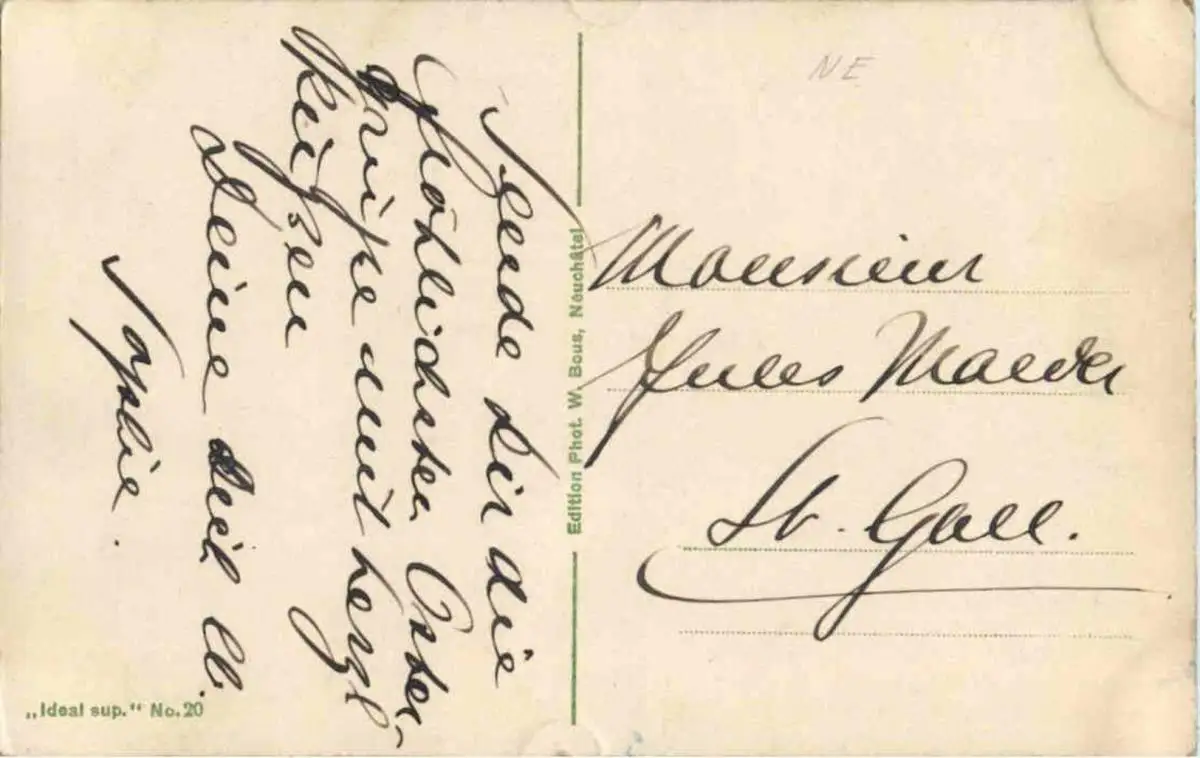 Sende dir die
fröhlichsten Oster-
grüße und herzl
Küßen
Deine
Sophie.
Edition Phot. W. Bous, Neuchâtel
„Ideal sup.“ No. 20
NE
Monsieur
Jules Maeder
St. Gall.